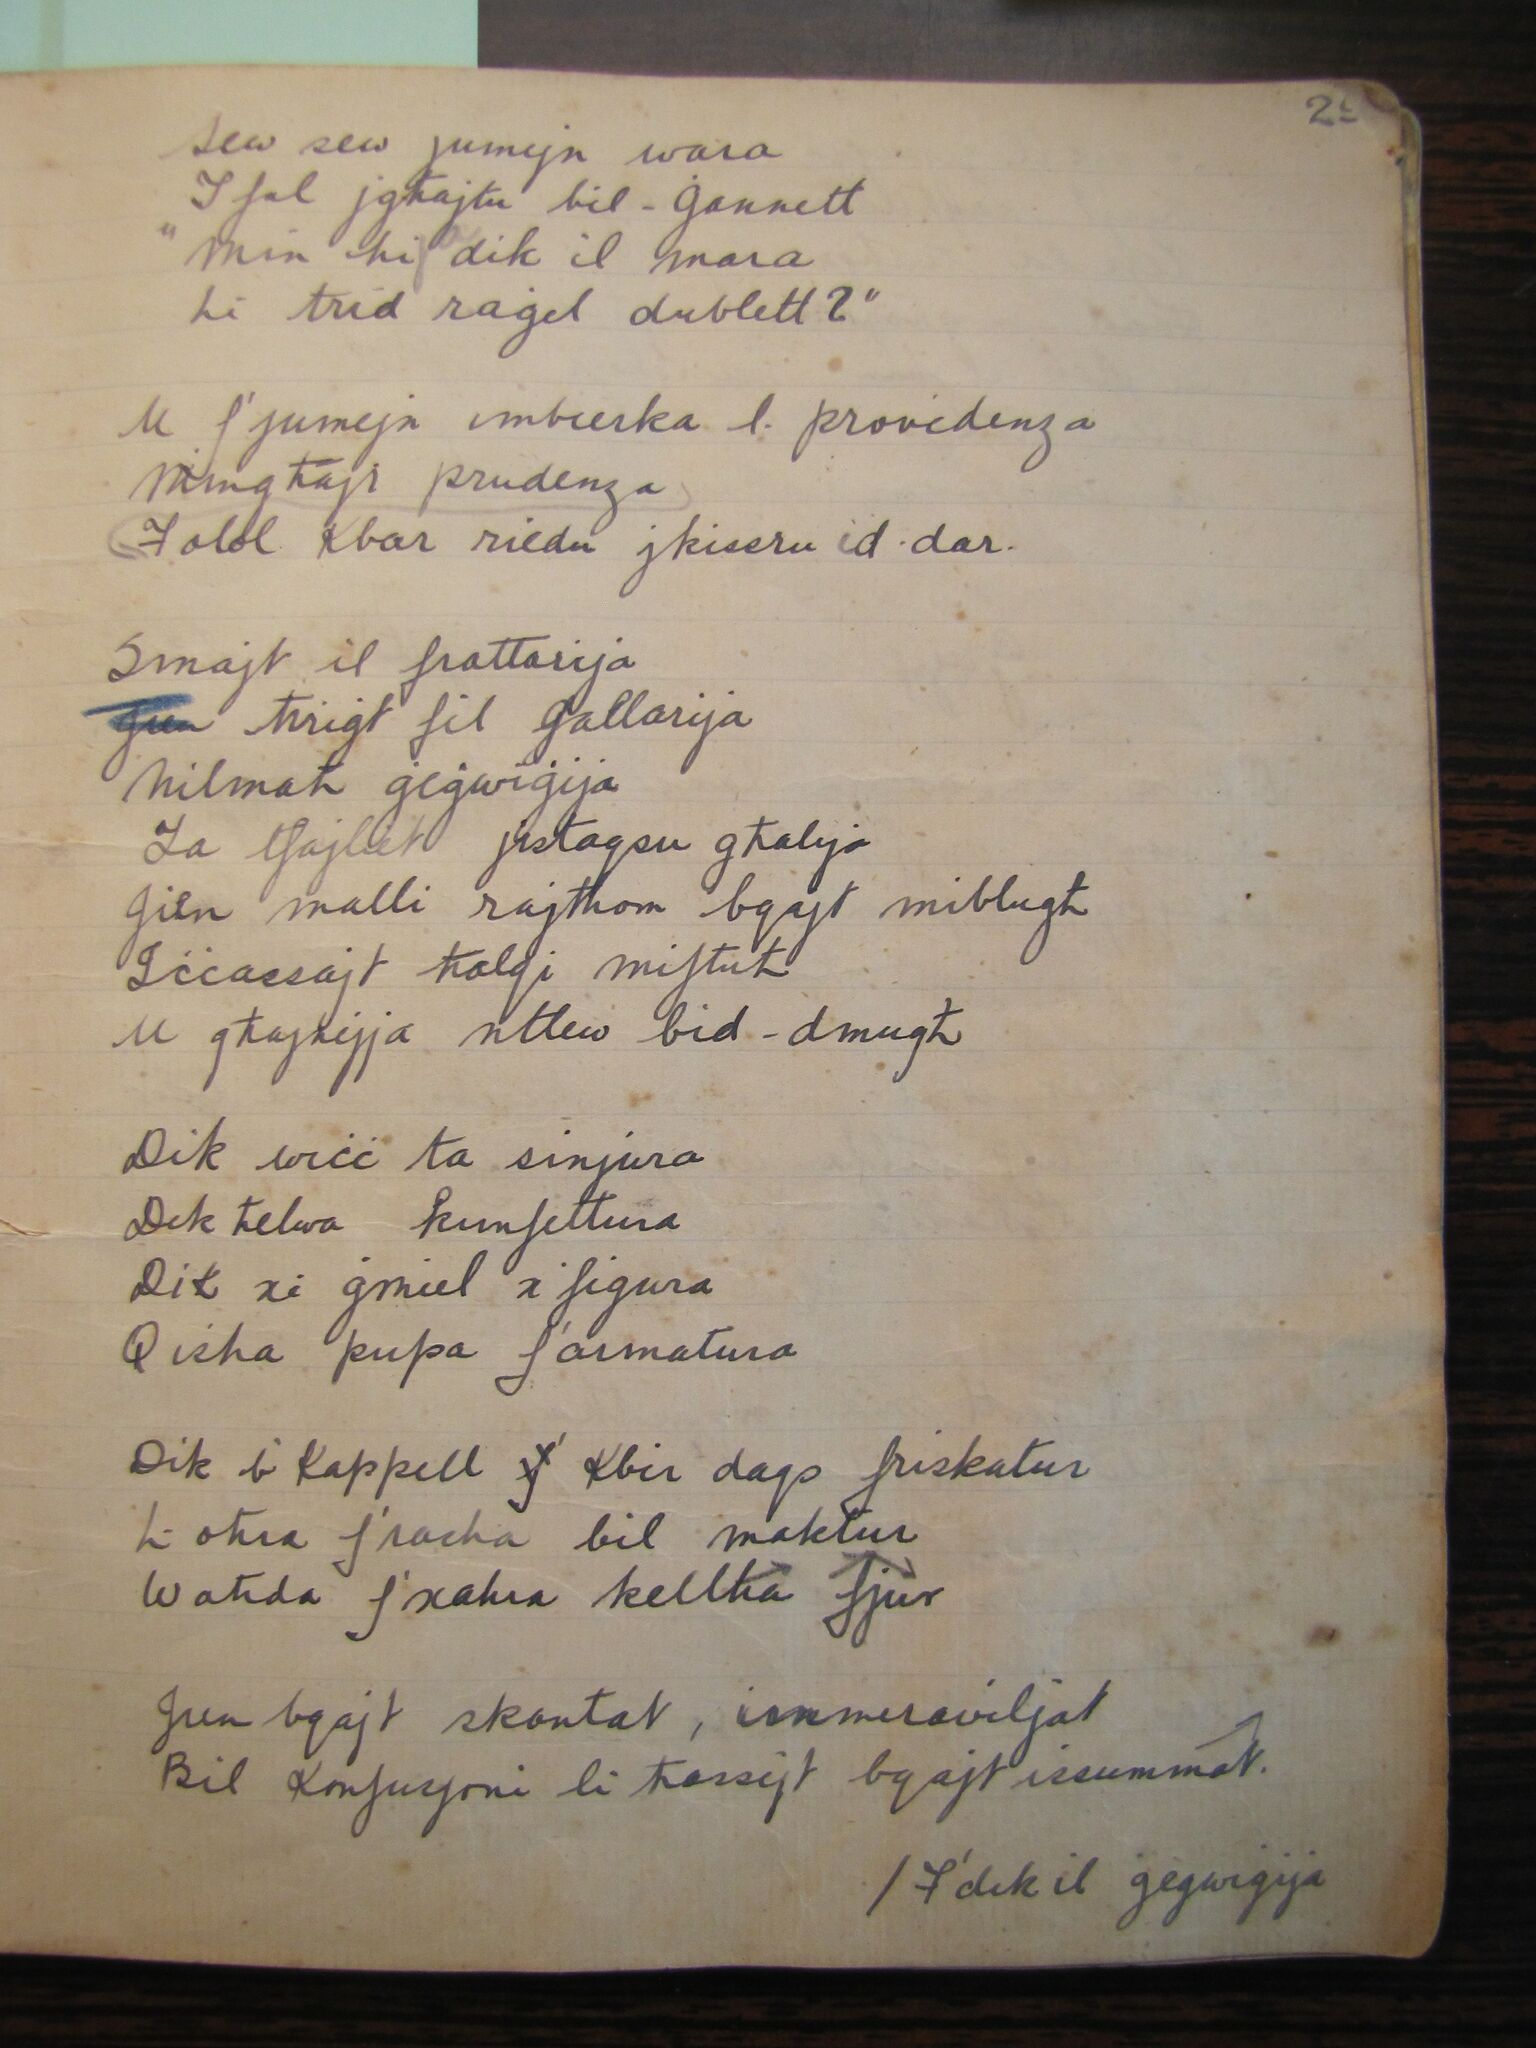 sew sew jumejn wara
Tfal jgħajtu bil-Gannett
"Min hi dik il mara
Li trid raġel dublett?"
U f'jumejn imbierka l. providenza
Mingħajr prudenza
Folol Kbar riedu jkissru id-dar.
Smajt il frattarija
ħriġt fil Gallarija
Nilmaħ ġeġwiġija
Za jistaqsu għalija
Jien malli rajthom bqajt miblugħ
Iċċassajt ħalqi miftuħ
U għajnejja nttew bid-dmugħ
Dik wiċċ ta sinjura
Dik ħelwa kunfettura
Dik xi ġmiel x'figura
Qisha pupa f'armatura
Dik b'Kappell Kbir daqs friskatur
L-oħra f'rasha bil maktur
Waħda f'xahra kellha fjur
Jien bqajt skantat, immeraviljat
Bil Konfusjoni li ħassejt bqajt issummat.
/F'dik il ġeġwiġija